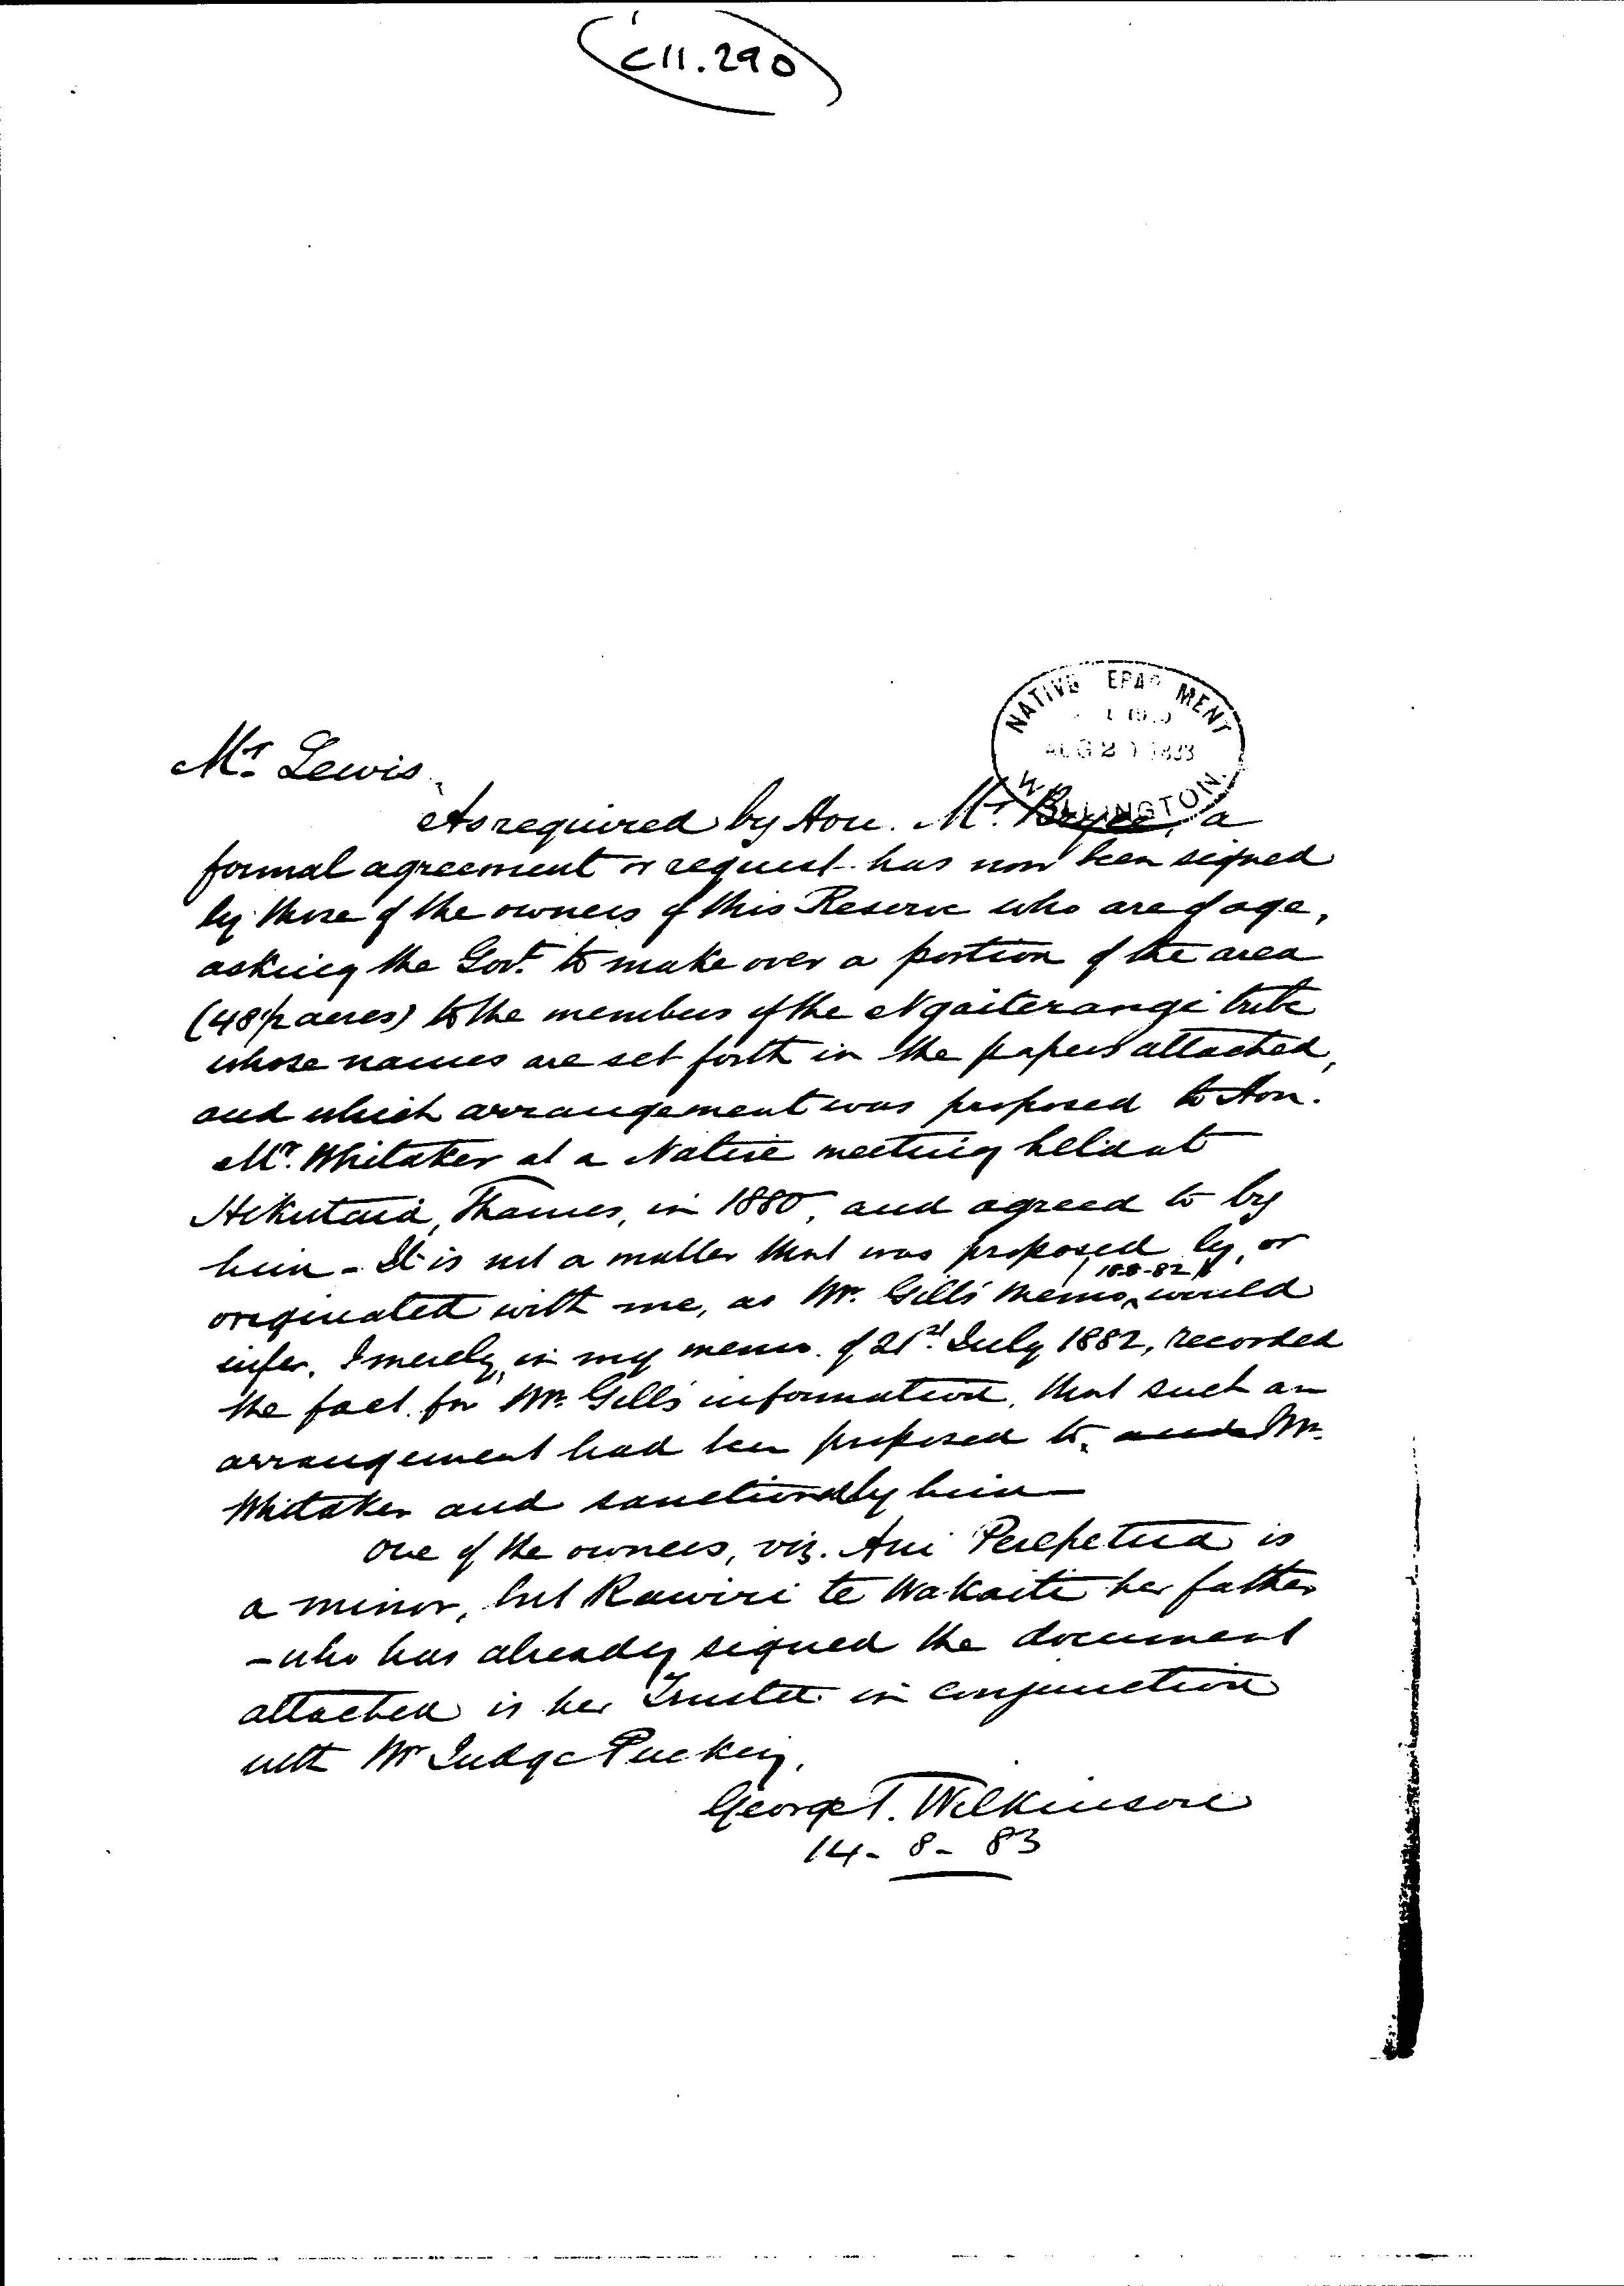 C11.290
NATIVE EPAR MENT
AUG 2 1883
WELLINGTON.
Mr. Lewis,
As required by Hon. Mr. Bryce, a
formal agreement or request has now been signed
by those of the owners of this Reserve who are of age,
asking the Govt. to make over a portion of the area
(48½ acres) to the members of the Ngaiterangi tribe
whose names are set forth in the papers attached,
and which arrangement was proposed to Hon.
Mr. Whitaker at a Native meeting held at
Hikutaia, Thames, in 1880, and agreed to by
him - It is not a matter that was proposed by, or
originated with me, as Mr. Gill's memo 18-8-82 would
infer. I merely, in my memo. of 21st July 1882, recorded
the fact for Mr. Gill's information, that such an
arrangement had been proposed to, and Mr.
Whitaker and sanctioned by him -
One of the owners, viz. Ani Perepetua is
a minor, but Rawiri te Wakaiti her father
- who has already signed the document
attached is her Trustee in conjunction
with Mr Judge Puckey.
George T. Wilkinson
14 - 8 - 83